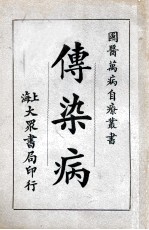 國醫萬病自療叢書
傳染病
上海大眾書局印行